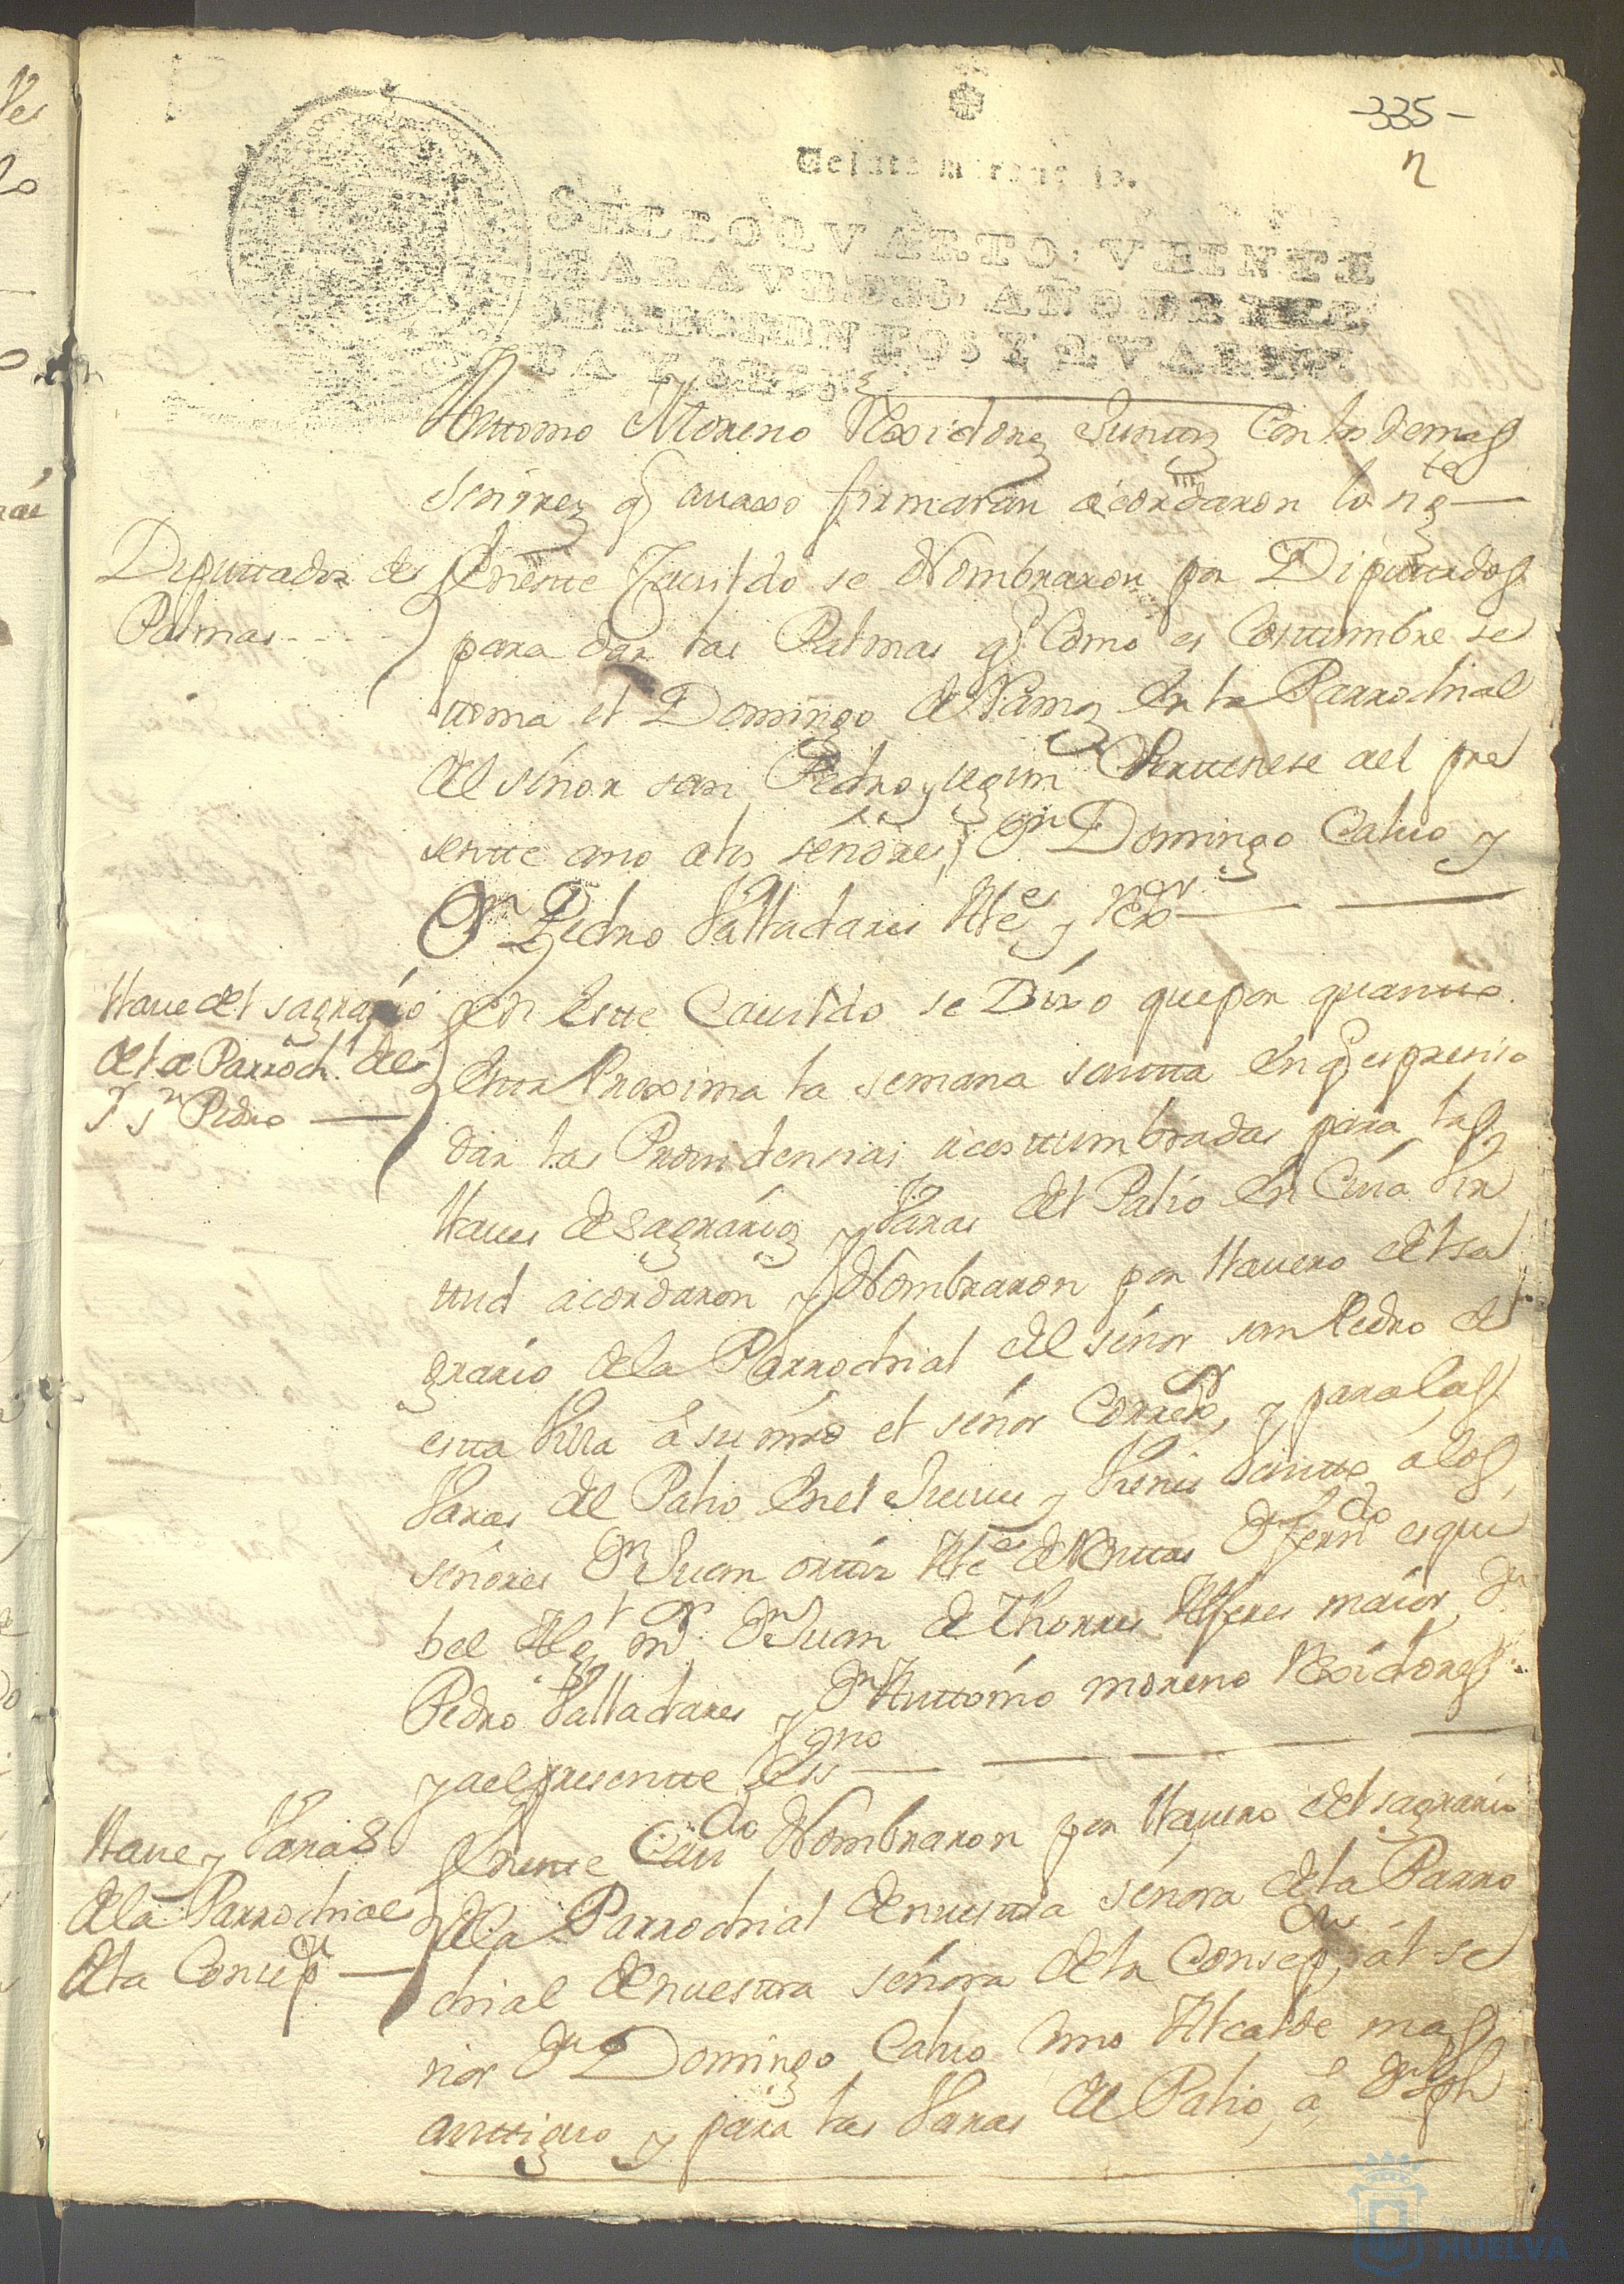 -335-
n
Veinte maravedis.
SELLO QVARTO, VEINTE
MARAVEDIS, AÑO DE MIL
SETECIENTOS Y QVAREN
TA Y
Anttonio Moreno Rexidores Juntos Con los demas
señores q avaxo firmaran acordaron lo sigte
Diputtados de
Palmas
En este Cavildo se Nombraron por Diputtados
para dar las Palmas q Como es Costtumbre se
ttoma el Domingo de Ramos en la Parrochial
del señor san Pedro y segun del pre
sentte año a los señores Dn Domingo Calvo y
Dn Pedro Valladares Altes y Rexor
llave del sagrario
de la Parrochl del
Sr Sn Pedro
En estte Cavildo se Dixo que por quantto
esta Proxima la semana santta en q es presiso
dar las Providensias acosttumbradas para las
llaves de sagrarios y Varas del Palio en Cuia Vir
ttud acordaron y Nombraron por llavero del sa
grario de la Parrochial del señor san Pedro de
estta Villa â su mrd el señor Corregor, y para las
Varas del Palio en el Jueves y Viernes Santto a los
señores Dn Juan orttiz Alte de Dn Ferndo esqui
bel Algl mor Dn Juan de Thorres Alferes maior, Dn
Pedro Valladares y Dn Anttonio moreno Rexidores
y a el presentte essno
llave y Varas
de la Parrochial
de la Consepon
En este Cavdo Nombraron por llavero del sagrario
de la Parrochial de nuestra señora de la Parro
chial de nuestra señora de la Consepon, al se
ñor Dn Domingo Calvo Alcalde mas
anttiguo y para las Varas del Palio, a Dn Jph
Ayuntamiento de
HUELVA